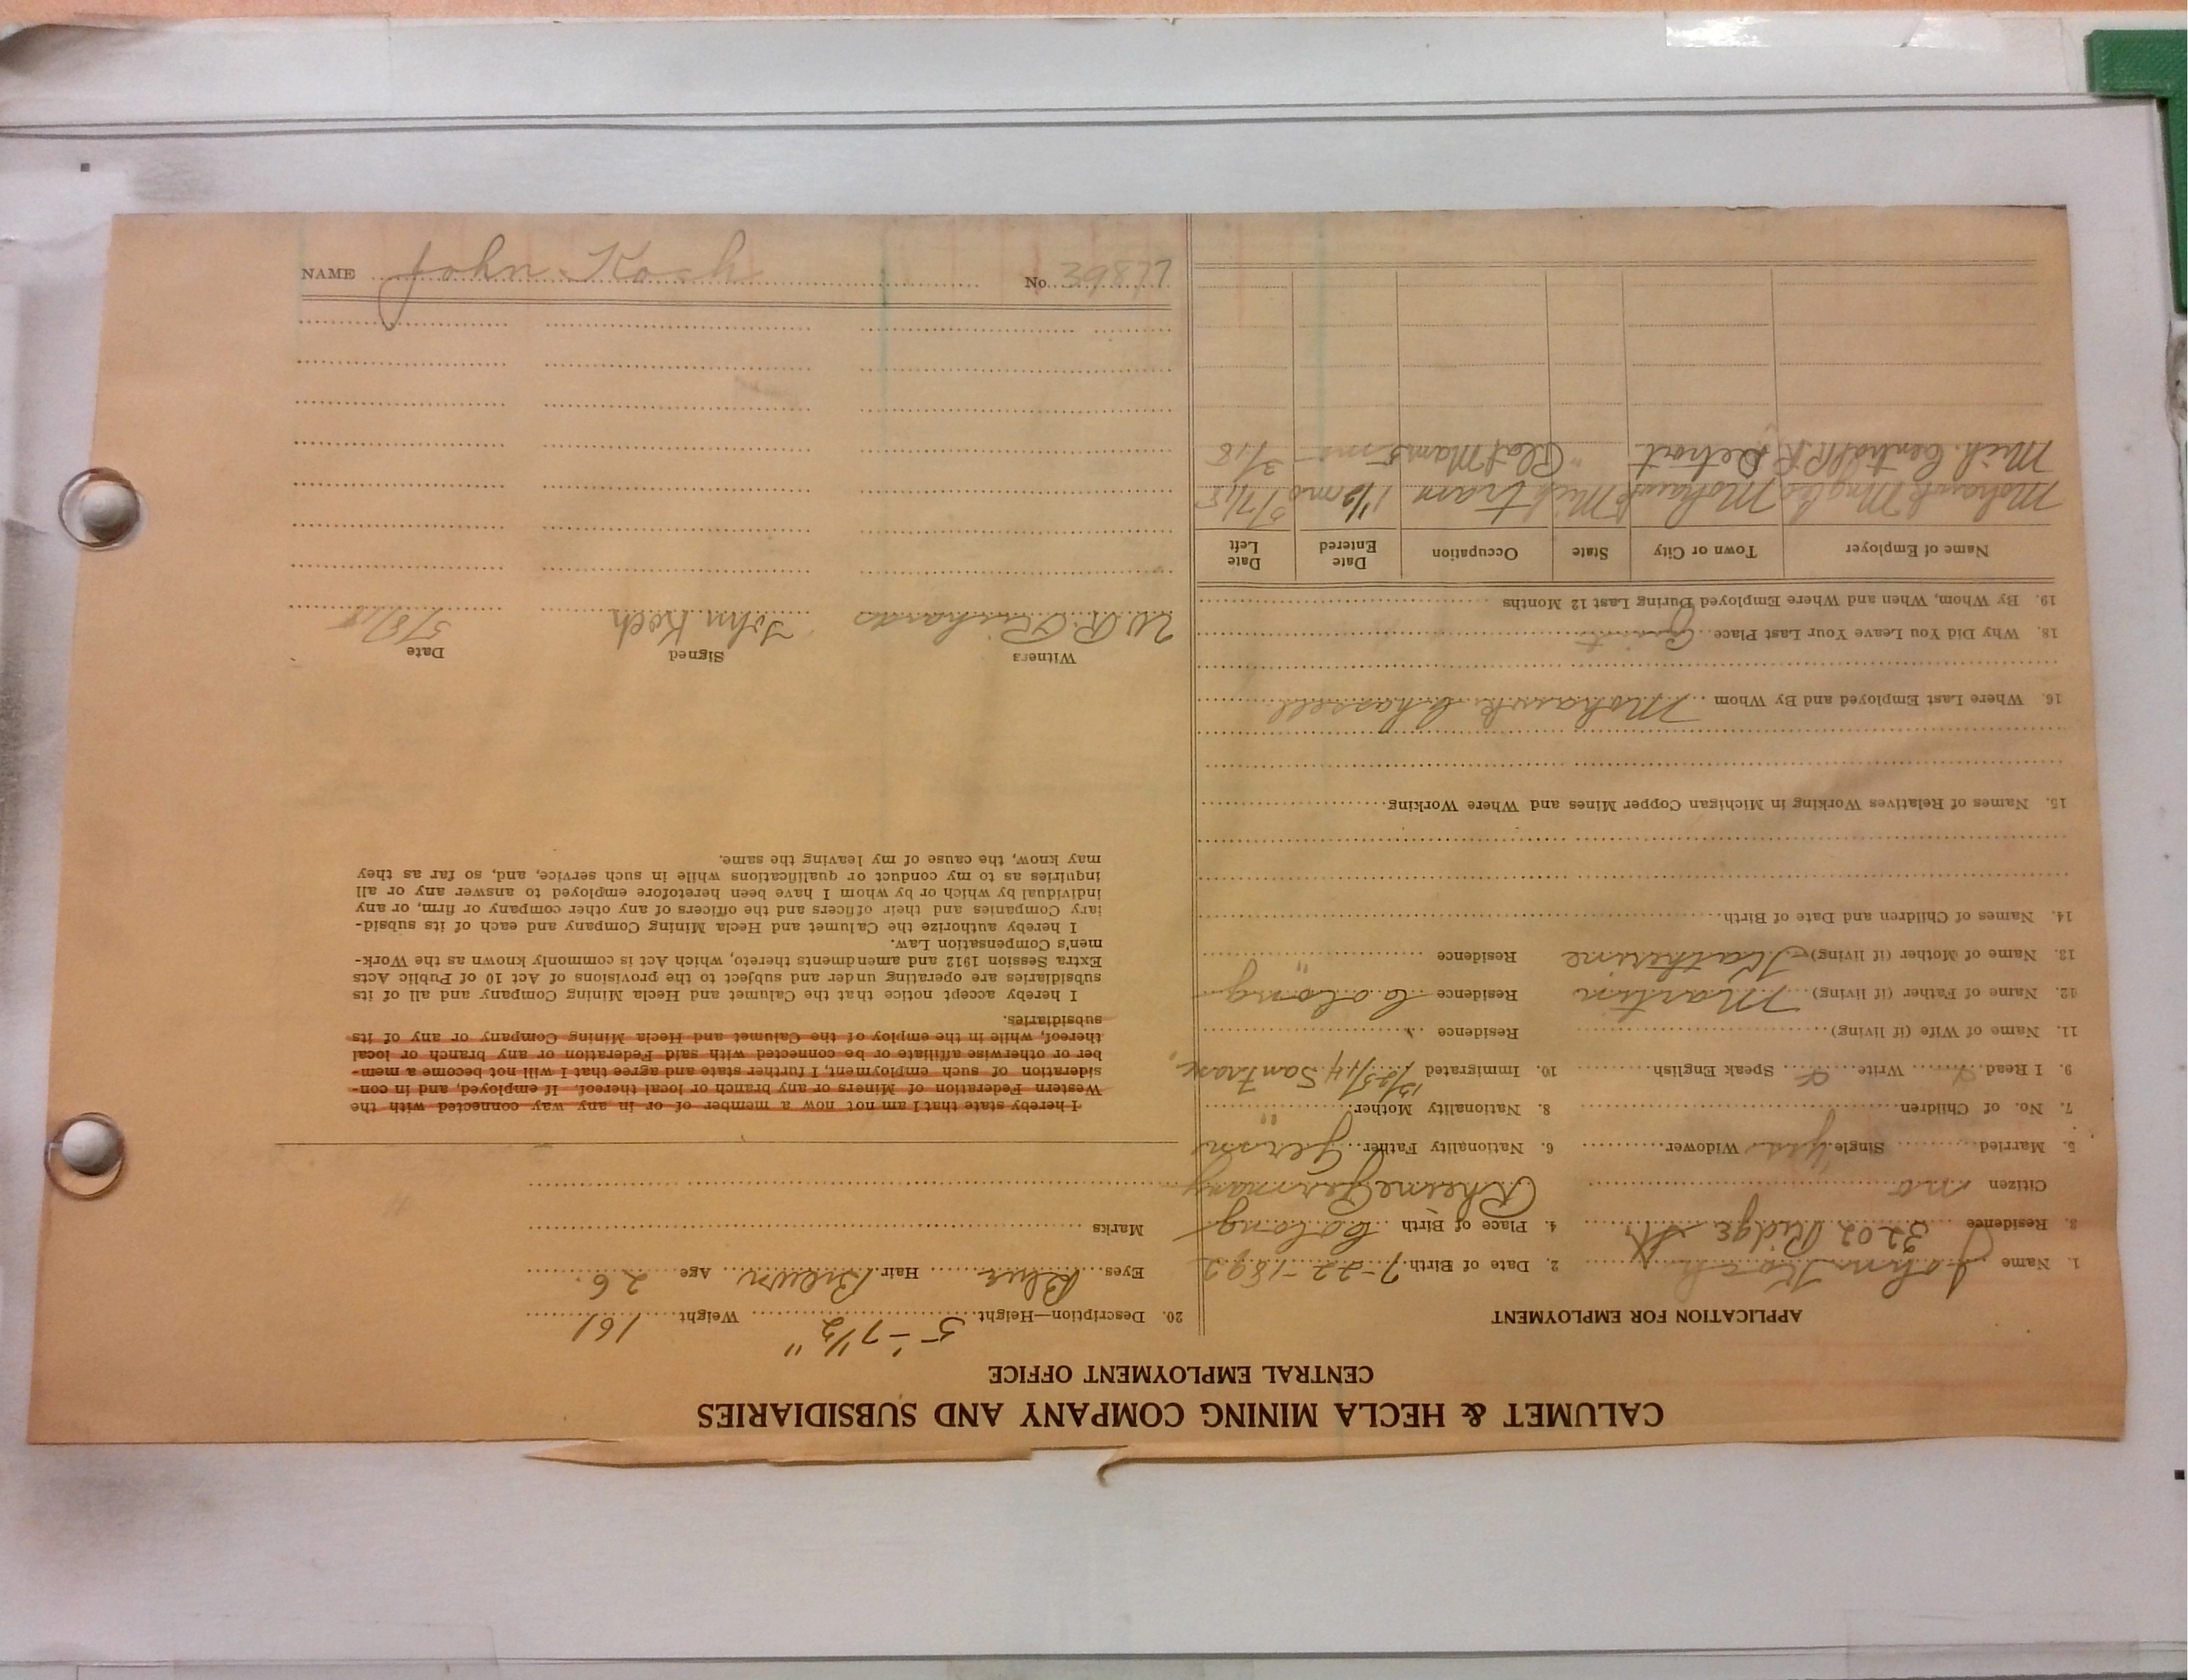 CALUMET & HECLA MINING COMPANY AND SUBSIDIARIES
CENTRAL EMPLOYMENT OFFICE
APPLICATION FOR EMPLOYMENT
1. Name John Koch 2. Date of Birth 7-22-1892
3. Residence 3202 Ridge St. 4. Place of Birth Colong
Citizen no Rheine Germany
5. Married Single yes Widower 6. Nationality Father Germ
7. No. of Children 8. Nationality Mother "
9. I Read Write Speak English 10. Immigrated 12/25/14 San Fran.
11. Name of Wife (if living) Residence
12. Name of Father (if living) Martin Residence Colong
13. Name of Mother (if living) Katherine Residence "
14. Names of Children and Date of Birth
15. Names of Relatives Working in Michigan Copper Mines and Where Working
16. Where Last Employed and By Whom Mohawk Chassell
18. Why Did You Leave Your Last Place Quit
19. By Whom, When and Where Employed During Last 12 Months
Name of Employer Town or City State Occupation Date Entered Date Left
Mohawk Mng Co Mohawk Mich tram 1 1/2 mo 5/7/18
Mich. Central R.R. Detroit " 5 mo 3/18
20. Description—Height 5'-7 1/2" Weight 161
Eyes Blue Hair Brown Age 26
Marks
I hereby state that I am not now a member of or in any way connected with the
Western Federation of Miners or any branch or local thereof. If employed, and in con-
sideration of such employment, I further state and agree that I will not become a mem-
ber or otherwise affiliate or be connected with said Federation or any branch or local
thereof, while in the employ of the Calumet and Hecla Mining Company or any of its
subsidiaries.
I hereby accept notice that the Calumet and Hecla Mining Company and all of its
subsidiaries are operating under and subject to the provisions of Act 10 of Public Acts
Extra Session 1912 and amendments thereto, which Act is commonly known as the Work-
men's Compensation Law.
I hereby authorize the Calumet and Hecla Mining Company and each of its subsid-
iary Companies and their officers and the officers of any other company or firm, or any
individual by which or by whom I have been heretofore employed to answer any or all
inquiries as to my conduct or qualifications while in such service, and, so far as they
may know, the cause of my leaving the same.
Witness Signed Date
W. R. Richards John Koch 5/8/18
NAME John Koch No. 39877